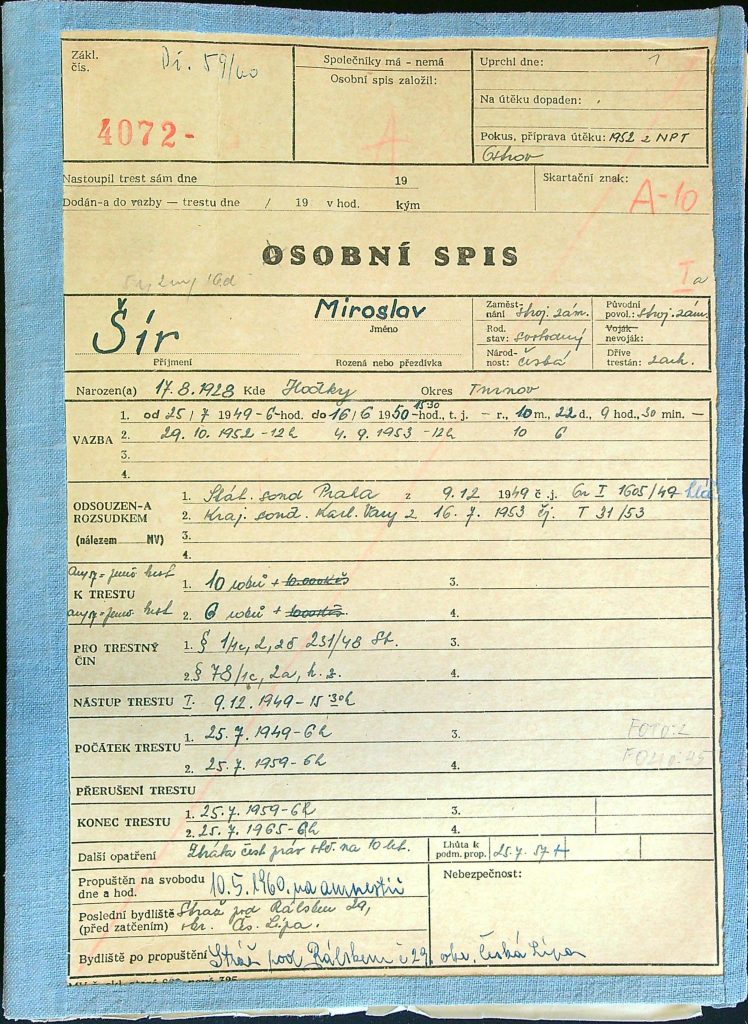 Zákl. čís. Di. 59/60
4072-
Společníky má - nemá
Osobní spis založil:
A
Uprchl dne:
Na útěku dopaden:
Pokus, příprava útěku: 1952 z NPT
Nastoupil trest sám dne 19
Dodán-a do vazby — trestu dne / 19 v hod. kým
Skartační znak:
A-10
OSOBNÍ SPIS
I a
Šír
Příjmení
Miroslav
Jméno
Rozená nebo přezdívka
Zaměstnání stroj. zám.
Rod. stav: svobodný
Národnost: česká
Původní povol.: stroj. zám.
Voják- nevoják:
Dříve trestán: zach.
Narozen(a) 17.8.1928 Kde Hodky Okres Turnov
VAZBA
1. od 25/7 1949-6-hod. do 16/6 1950 15:30-hod., t. j. - r., 10 m., 22 d., 9 hod., 30 min. —
2. 29. 10. 1952-12h 4. 9. 1953-12h 10 6
3.
4.
ODSOUZEN-A ROZSUDKEM
(nálezem MV)
1. Stát. soud Praha z 9.12 1949 č. j. Or I 1605/49
2. Kraj. soud. Karl. Vary z 16. 7. 1953 čj. T 31/53
3.
4.
K TRESTU
1. 10 roků + 10.000 Kčs
3.
2. 6 roků + 1000 Kčs.
4.
PRO TRESTNÝ ČIN
1. § 1/1c, 2, zč 231/48 Sb.
3.
2. § 78/1c, 2a, t. z.
4.
NÁSTUP TRESTU I. 9.12.1949-15 30h
POČÁTEK TRESTU
1. 25. 7. 1949-6h
3.
2. 25. 7. 1959-6h
4.
FOTO: 2
PŘERUŠENÍ TRESTU
KONEC TRESTU
1. 25. 7. 1959-6h
3.
2. 25. 7. 1965-6h
4.
Další opatření Ztráta čest. práv obč. na 10 let.
Lhůta k podm. prop. 25.7.57
Propuštěn na svobodu dne a hod. 10.5.1960. na amnestii
Nebezpečnost:
Poslední bydliště (před zatčením) Stráž pod Rálskem 29, okr. Čs. Lípa.
Bydliště po propuštění Stráž pod Rálskem č 29. okr. Česká Lípa